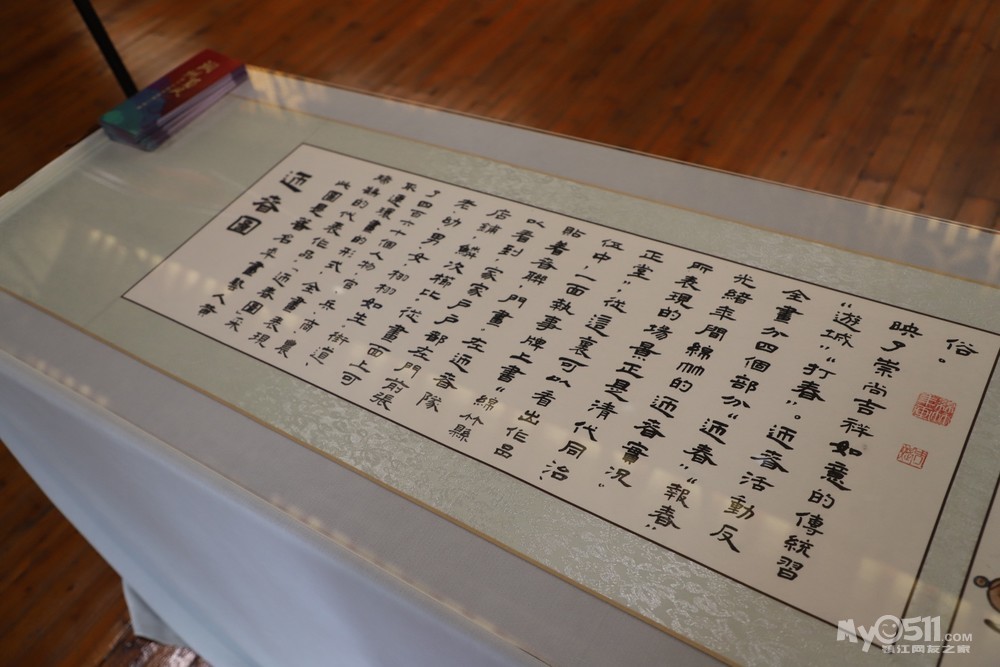 迎春圖
此圖是著名年畫藝人黃
的代表作品"迎春圖"采
連環畫的形式,全畫表現
了四百六十個人物,官、兵、商、農、
老、幼、男、女,初初如生,街道、
店鋪,鱗次櫛比,從畫面上可
以看到,家家戶戶都在門前張
貼着春聯,門畫。在迎春隊
伍中,一面執事牌上書"綿竹縣
正堂",從這裏可以看出作品
所表現的場景正是清代同治、
光緒年間綿竹的迎春實況。
全畫分四個部分"迎春""報春"
"遊城""打春"。迎春活動反
映了崇尚吉祥如意的傳統習
俗。
My0511.COM
镇江网友之家